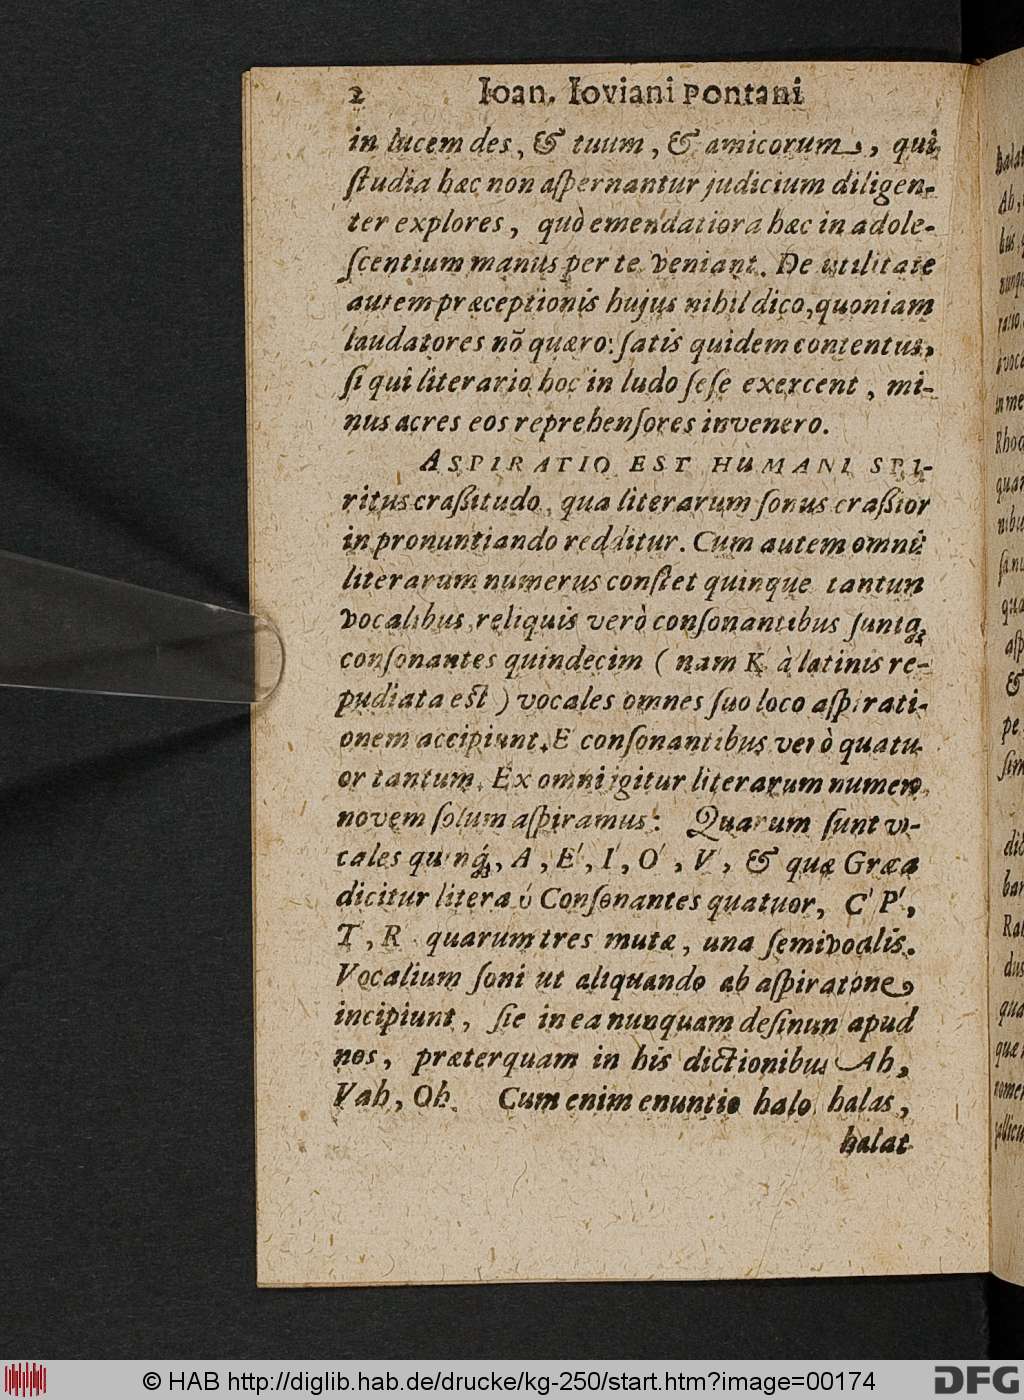 2 Ioan. Ioviani Pontani
in lucem des, & tuum, & amicorum, qui
ſtudia hæc non aſpernantur judicium diligen-
ter explores, quò emendatiora hæc in adole-
ſcentium manus per te veniant. De utilitate
autem præceptionis hujus nihil dico, quoniam
laudatores nõ quæro: ſatis quidem contentus,
ſi qui literario hoc in ludo ſeſe exercent, mi-
nus acres eos reprehenſores invenero.
ASPIRATIO EST HUMANI SPI-
ritus craßitudo, qua literarum ſonus craßior
in pronuntiando redditur. Cum autem omnis
literarum numerus conſtet quinque tantun
vocalibus, reliquis verò conſonantibus ſuntq;
conſonantes quindecim (nam K à latinis re-
pudiata est) vocales omnes ſuo loco aſpirati-
onem accipiunt. E conſonantibus verò quatu-
or tantum. Ex omni igitur literarum numero
novem ſolum aſpiramus: Quarum ſunt vo-
cales quinq́;, A, E, I, O, V, & quæ Græca
dicitur litera ύ Conſonantes quatuor, C P,
T, R quarum tres mutæ, una ſemivocalis.
Vocalium ſoni ut aliquando ab aſpiratone
incipiunt, ſic in ea nunquam deſinun apud
nos, præterquam in his dictionibus Ah,
Vah, Oh. Cum enim enuntio halo halas,
halat
© HAB http://diglib.hab.de/drucke/kg-250/start.htm?image=00174
DFG